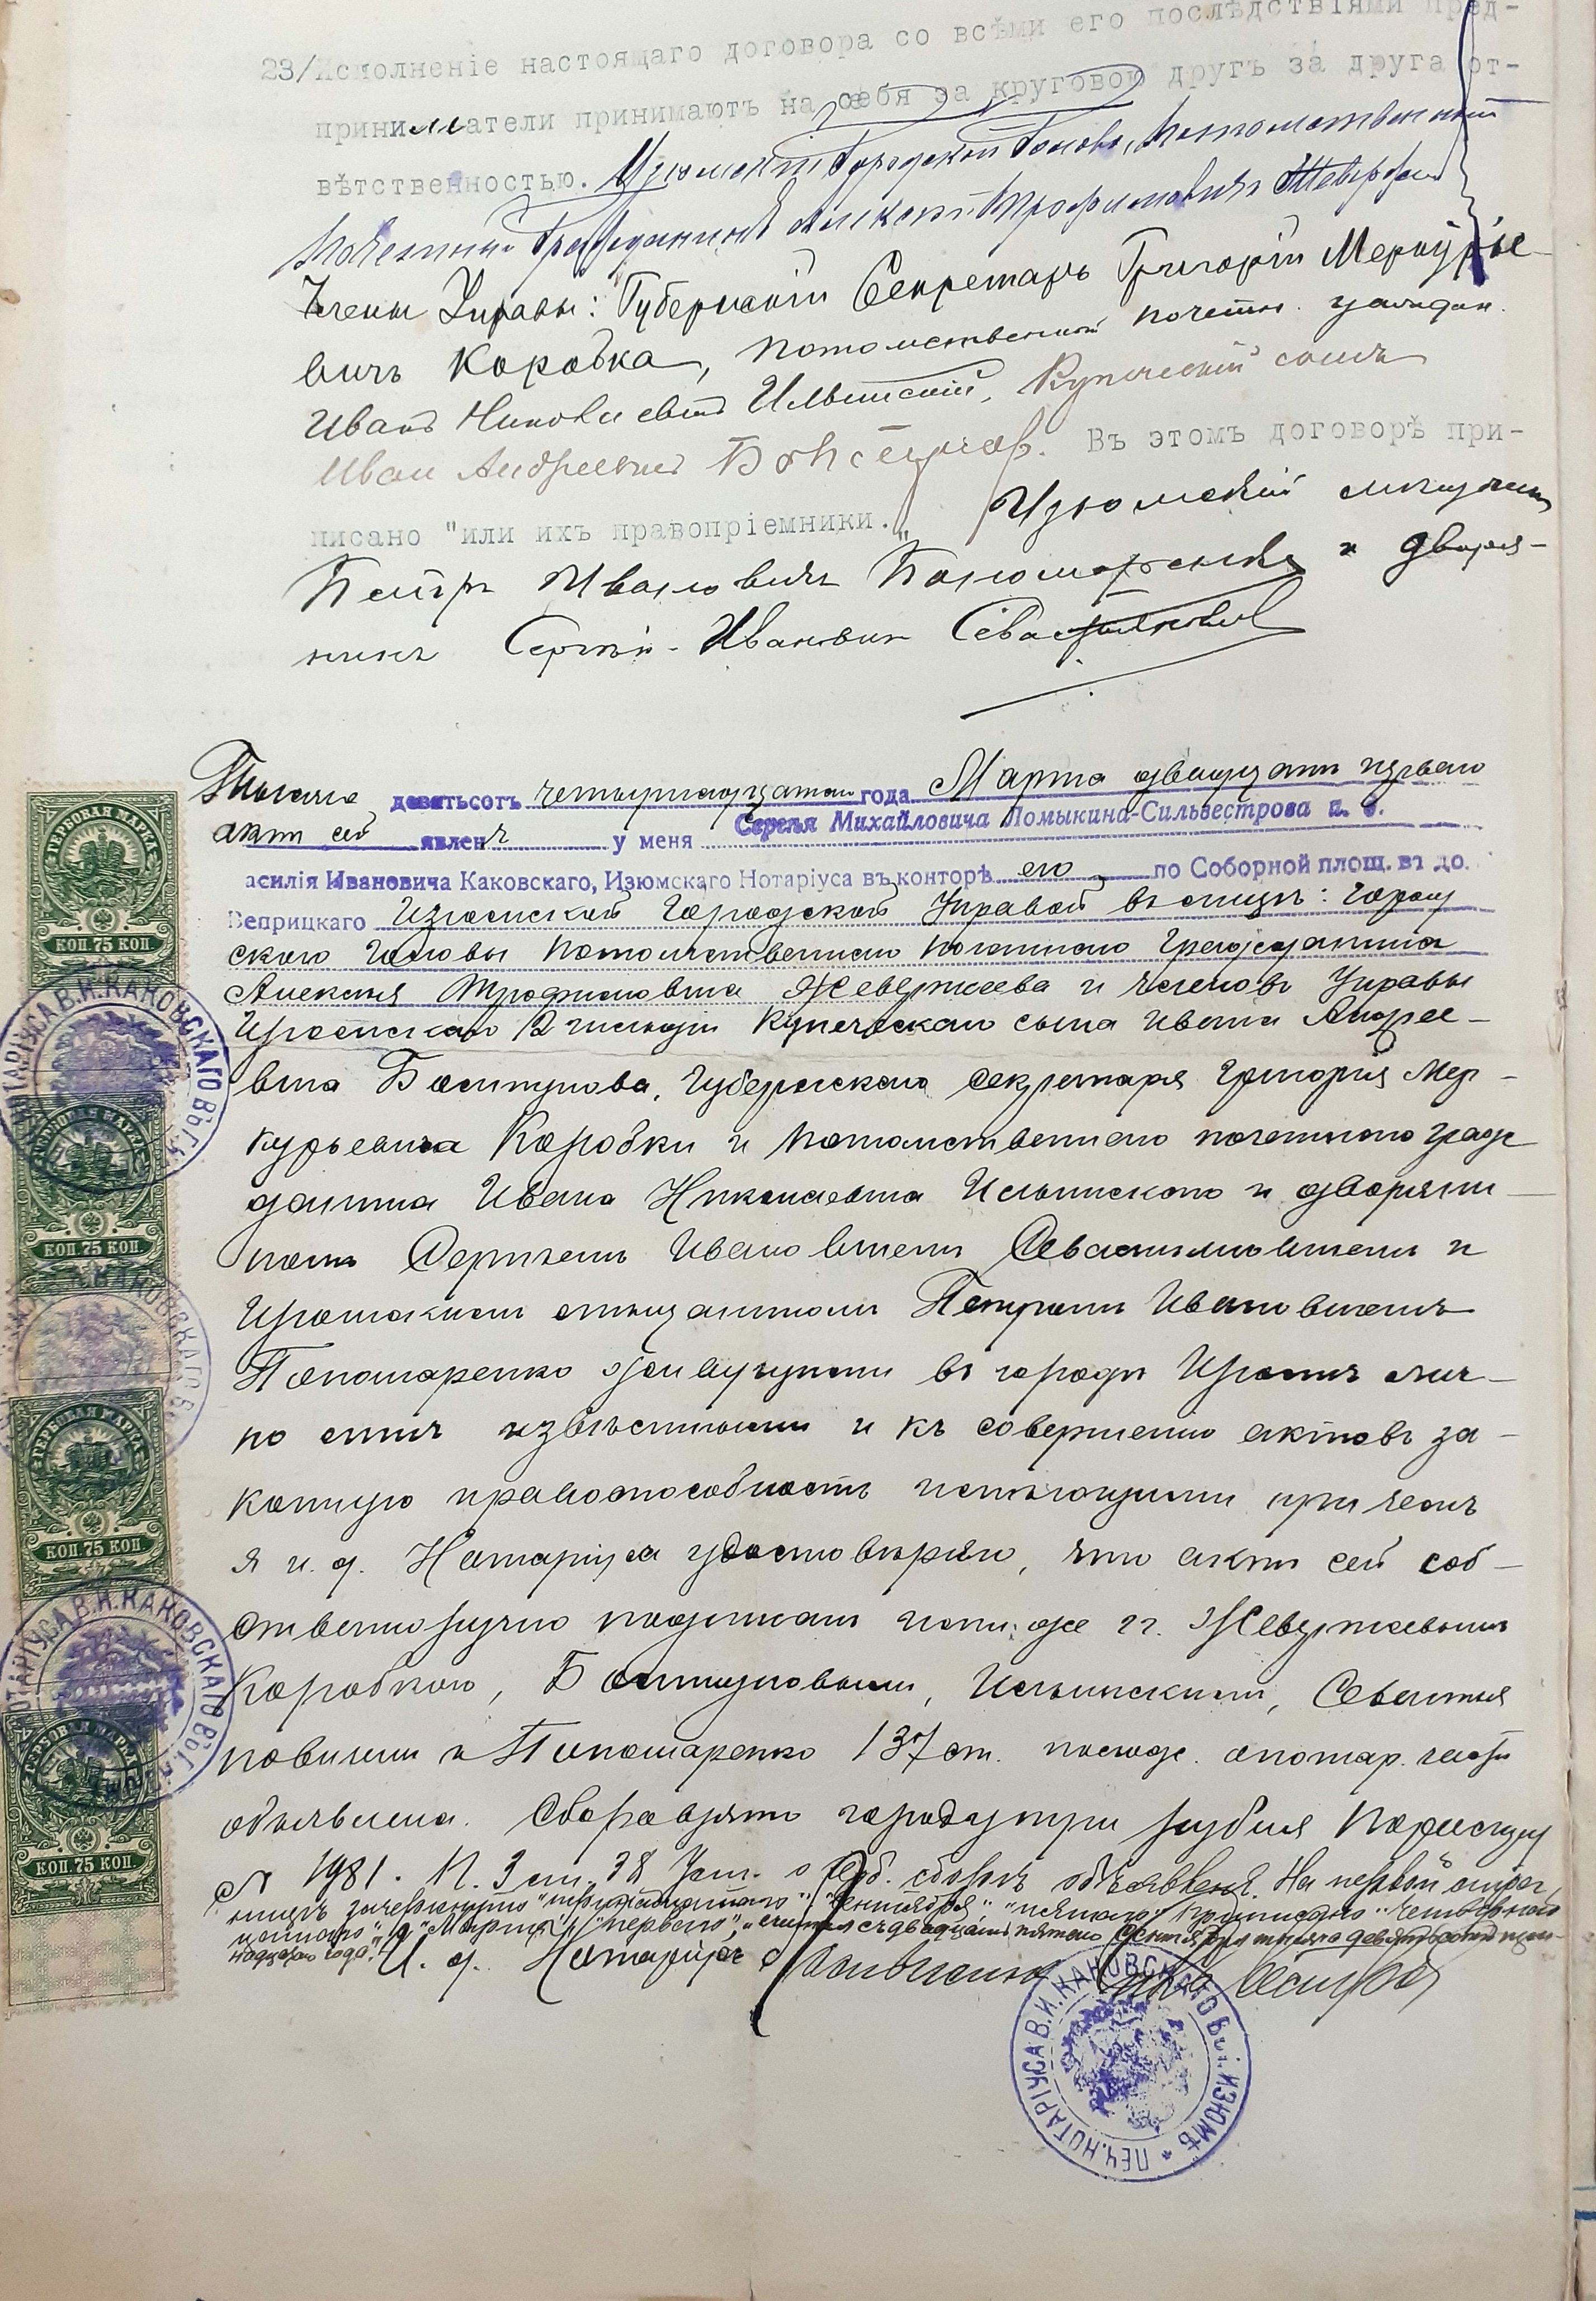 23/Исполненіе настоящаго договора со всѣми его послѣдствіями пред-
приниматели принимаютъ на себя за круговой другъ за друга от-
вѣтственностью. Изюмскій Городской Голова, Потомственный
Почетный Гражданинъ Алексѣй Трофимовичъ Жевержеевъ
Члены Управы: Губернскій Секретарь Григорій Меркурье-
вичъ Коробка, потомственный почетн. граждан.
Иванъ Николаевичъ Ильинскій, Купеческій сынъ
Иван Андреевичъ Бостунов. Въ этомъ договорѣ при-
писано "или ихъ правопріемники." Изюмскій мещанин
Петръ Ивановичъ Пономаренко и дворя-
нинъ Сергѣй Ивановичъ Севастьяновичъ
Тысяча девятьсотъ четырнадцатаго года Марта двадцать перваго
актъ сей явленъ у меня Сергѣя Михайловича Ломыкина-Сильвестрова и. о.
асилія Ивановича Каковскаго, Изюмскаго Нотаріуса въ конторѣ его по Соборной площ. въ до.
Веприцкаго Изюмской Городской Управой въ лицѣ: город
ского Головы потомственнаго почетнаго гражданина
Алексѣя Трофимовича Жевержеева и членовъ Управы
Изюмскаго 2 гильдіи Купеческаго сына Ивана Андрее-
вича Бостунова, Губернскаго Секретаря Григорія Мер-
курьевича Коробки и потомственнаго почетнаго граж
данина Ивана Николаевича Ильинскаго и дворяни-
номъ Сергѣемъ Ивановичемъ Севастьяновичемъ и
Изюмскимъ мѣщаниномъ Петромъ Ивановичемъ
Пономаренко живущими въ городѣ Изюмѣ лич-
но мнѣ извѣстными и къ совершенію актовъ за-
конную правоспособность имѣющими при чемъ
я и. д. Нотаріуса удостовѣряю, что актъ сей соб-
ственноручно подписанъ ими же гг. Жевержеевымъ
Коробкою, Бостуновымъ, Ильинскимъ, Севастья
новичемъ и Пономаренко 137 ст. полож. о нотар. части
объявлена. Сбора взято городу три рубля По реестру
№ 1981. П. 3 ст. 38 Уст. о Герб. сборѣ объявленъ. На первой стран
ницѣ зачеркнуто "тринадцатаго" "Сентября" "пятаго", приписано "четырнад
цатаго", "Марта", "перваго", "считая съ двадцать пятаго Сентября тысяча девятьсотъ три-
надцатаго года". И. д. Нотаріуса С. Ломыкинъ Сильвестровъ
ГЕРБОВАЯ МАРКА
КОП. 75 КОП.
ГЕРБОВАЯ МАРКА
КОП. 75 КОП.
ГЕРБОВАЯ МАРКА
КОП. 75 КОП.
ГЕРБОВАЯ МАРКА
КОП. 75 КОП.
НОТАРІУСА В.И. КАКОВСКАГО ВЪ Г.
КАКОВСКАГО ВЪ
НОТАРІУСА В.И. КАКОВСКАГО ВЪ Г.
ПЕЧ. НОТАРІУСА В.И. КАКОВСКАГО ВЪ Г. ИЗЮМѢ